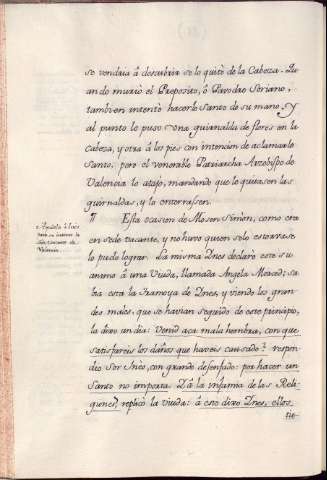 se vendria â descubrir se lo quitò de la Cabeza. Qu-
ando murió el Preposito, ô Pavodre Soriano,
tambien intentó hacerle Santo de su mano, y
al punto lo puso una guirnalda de flores en la
Cabeza, y otra â los pies con intencion de aclamarle
Santo; pero el venerable Patriarcha Arzobispo de
Valencia lo atajo, mandando que lo quitasen las
guirnaldas, y lo enterrasen.
¶ Esta ocasion de Mosen Simòn, como era
en sede vacante, y no huvo quien selo estorvase
lo pudo lograr. La misma Ines declaro este su
animo â una Viuda, llamada Angela Merced: sa-
bia esta la tramoya de Ines, y viendo los gran-
des males, que se havian seguido de este principio,
la dixo un dia: Venid aca mala hembra, con que
satisfareis los daños que haveis causado? respon-
dio Sor Ines, con grande desenfado: por hacer un
Santo no importa. Y â la infamia de las Reli-
giones, replicò la viuda: â esto dixo Ines, ellos
tie-